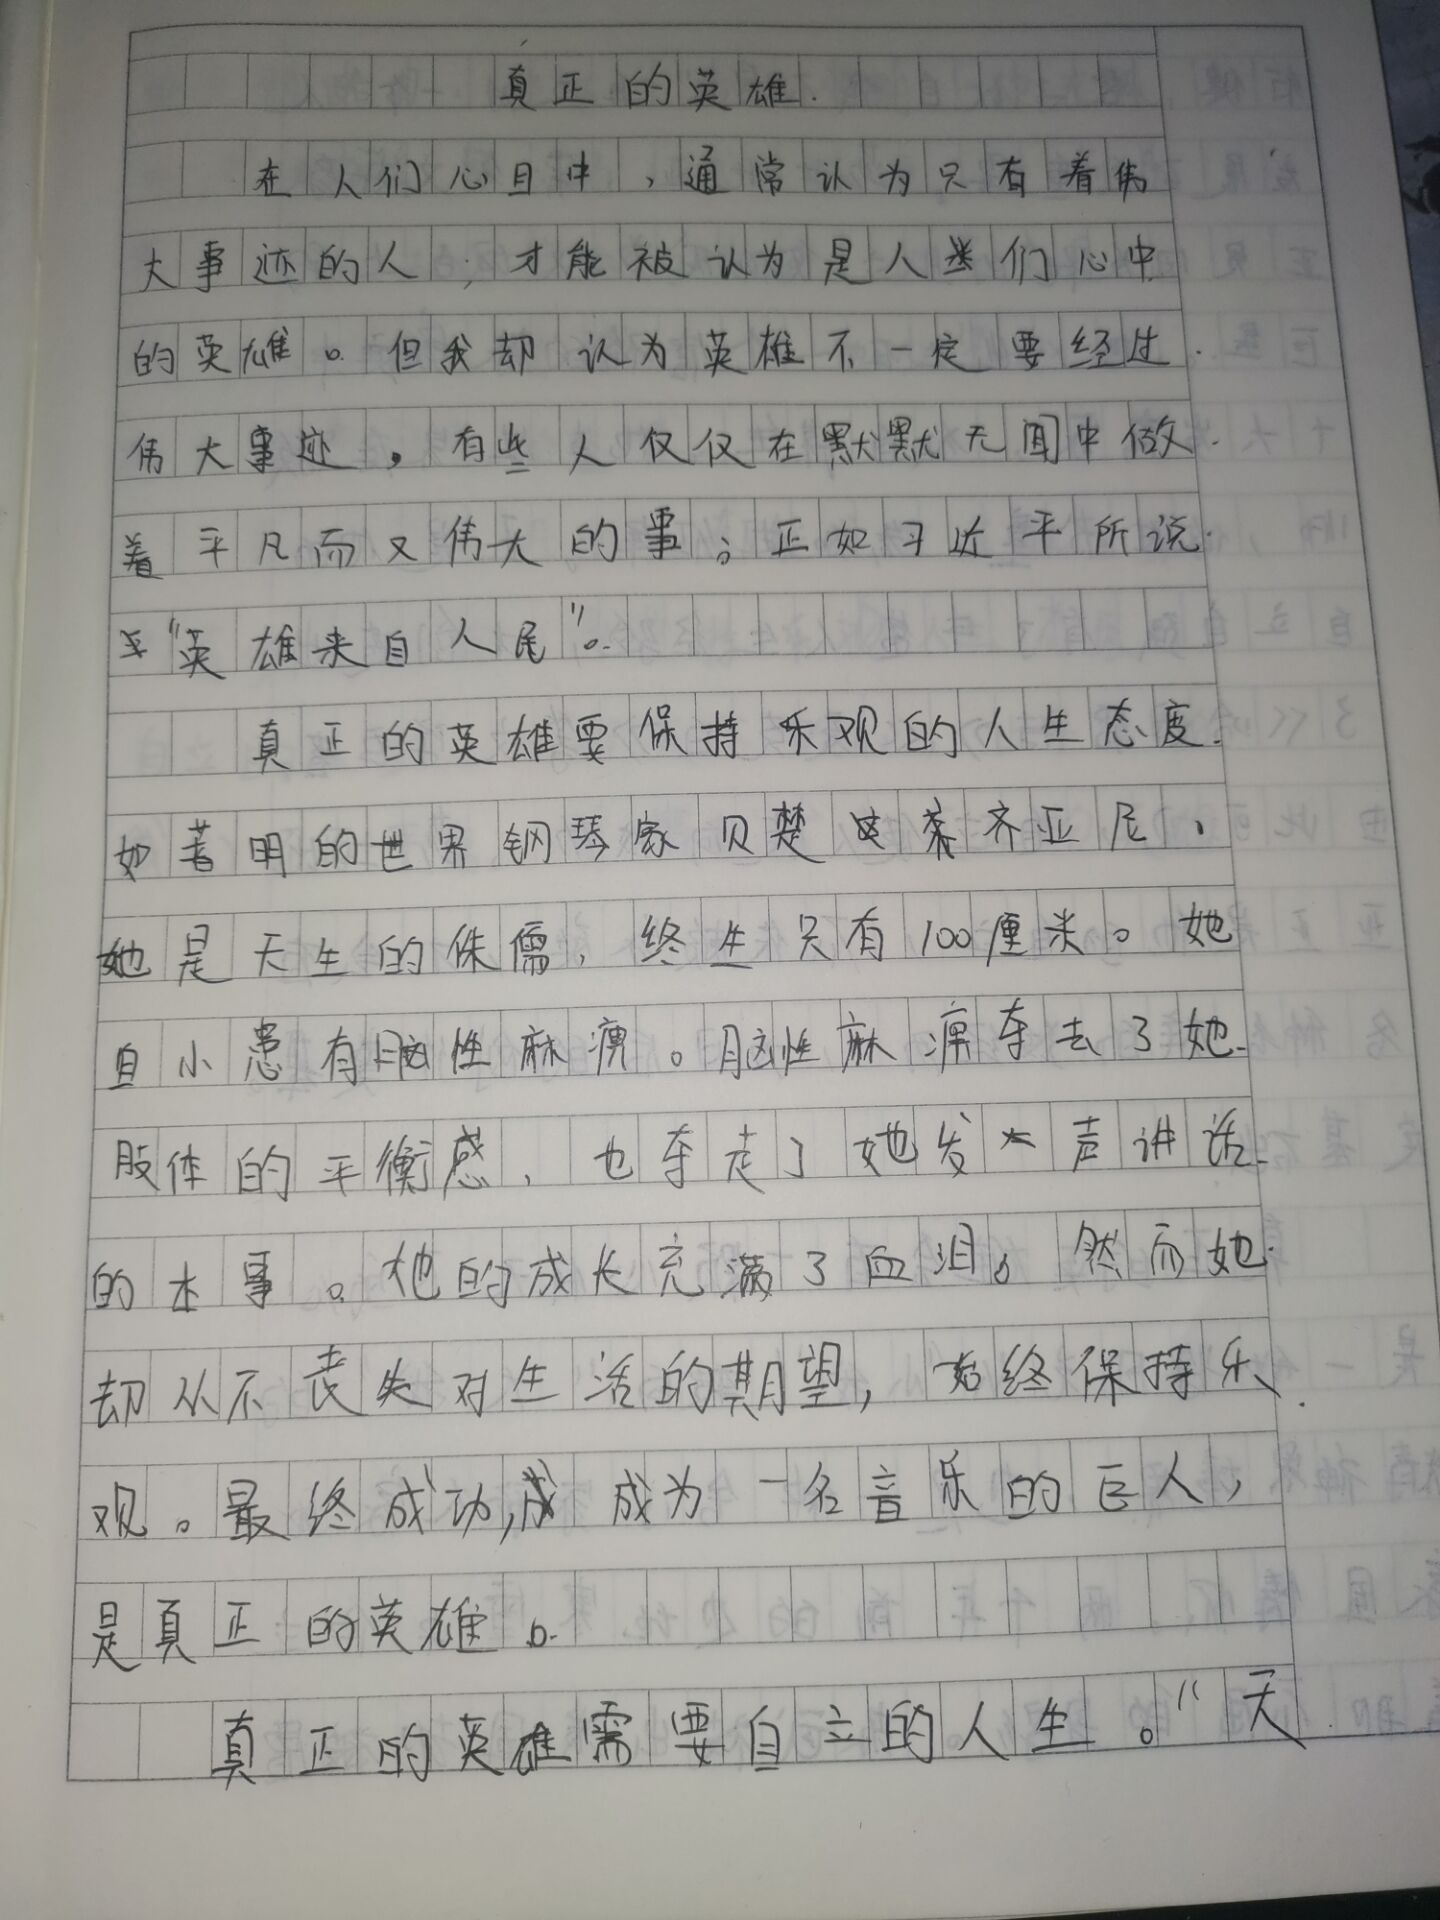 真正的英雄.
在人们心目中,通常认为只有着伟
大事迹的人,才能被认为是人类们心中
的英雄。但我却认为英雄不一定要经过
伟大事迹,有些人仅仅在默默无闻中做
着平凡而又伟大的事。正如习近平所说
"英雄来自人民"。
真正的英雄要保持乐观的人生态度.
如著明的世界钢琴家贝楚齐亚尼,
她是天生的侏儒,终生只有100厘米。她
自小患有脑性麻痹。脑性麻痹夺去了她
肢体的平衡感,也夺走了她发声讲话
的本事。他的成长充满了血泪。然而她
却从不丧失对生活的期望,始终保持乐
观。最终成功,成为一名音乐的巨人,
是真正的英雄。
真正的英雄需要自立的人生。"天